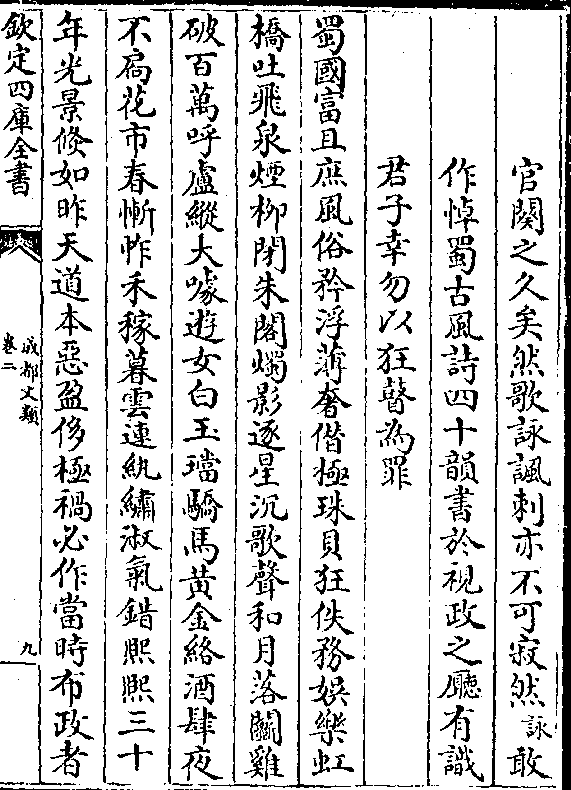 官闕之久矣然歌詠諷刺亦不可寂然詠敢
作悼蜀古風詩四十韻書於視政之廳有識
君子幸勿以狂瞽為罪
蜀國富且庶風俗矜浮薄奢僭極珠貝狂佚務娛樂虹
橋吐飛泉煙柳閉朱閣燭影逐星沉歌聲和月落鬭雞
破百萬呼盧縱大噱遊女白玉璫驕馬黃金絡酒肆夜
不扄花市春慚怍禾稼暮雲連紈繡淑氣錯熙熙三十
年光景倐如昨天道本惡盈侈極禍必作當時布政者
欽定四庫全書
成都文類
卷二
九